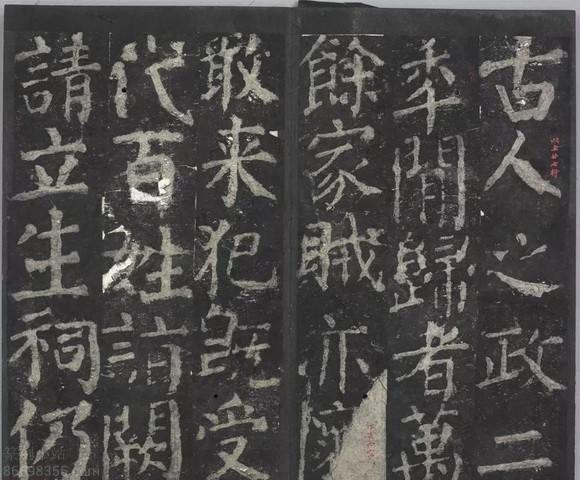 古人之政二
年間歸者萬
餘家賊亦懷
敢来犯既受
代百姓詣闕
請立生祠仍